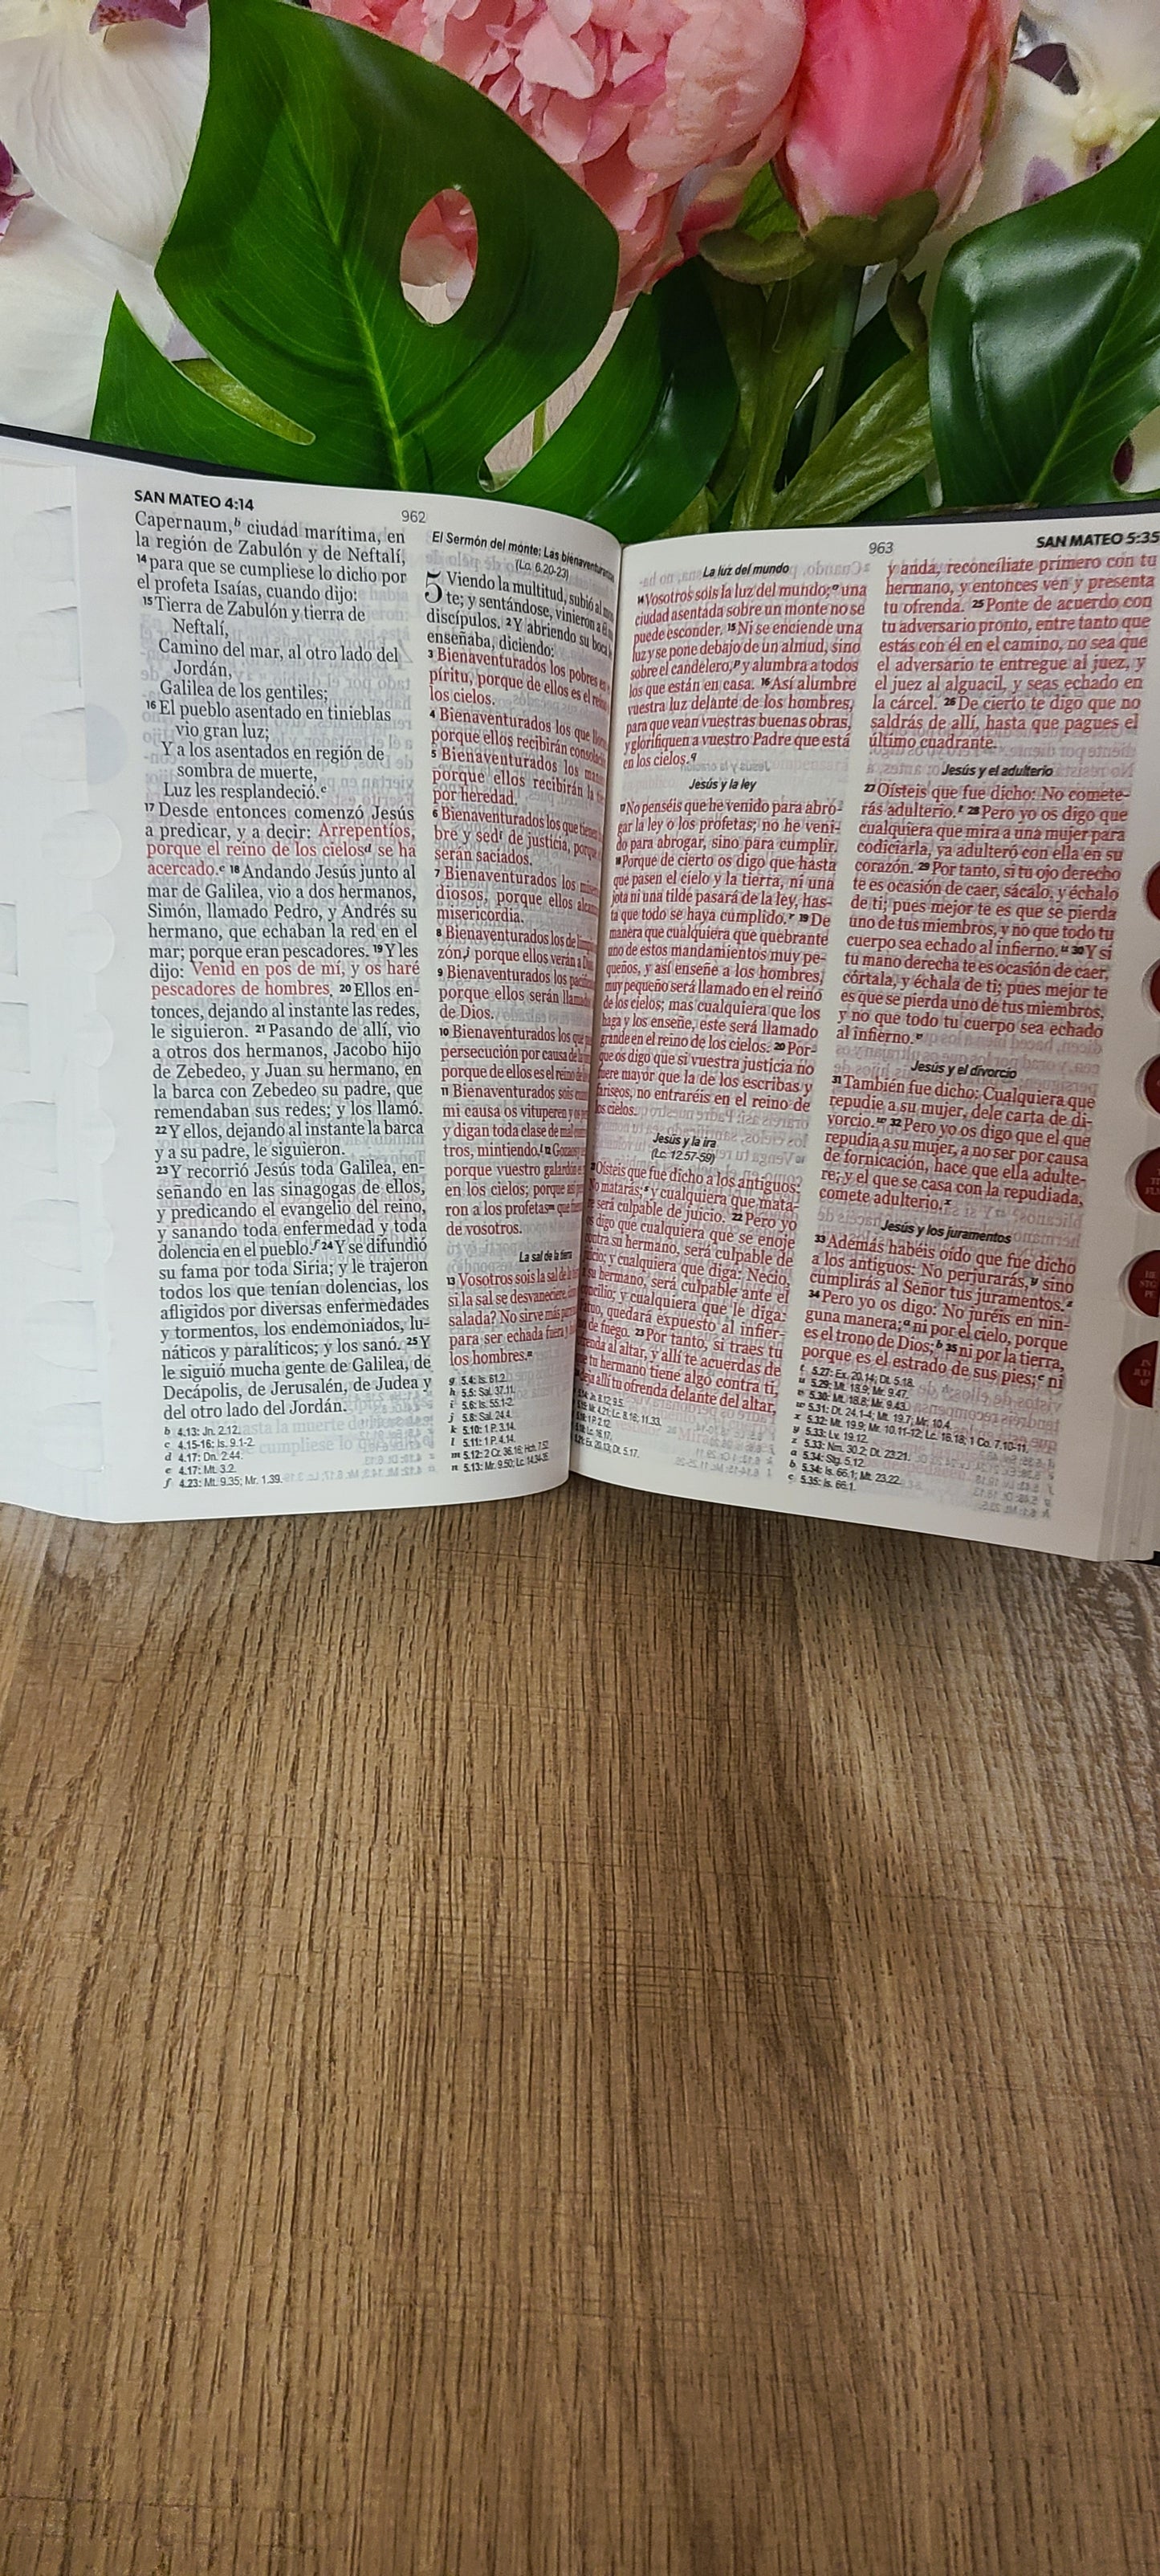 SAN MATEO 4:14
962
Capernaum,b ciudad marítima, en
la región de Zabulón y de Neftalí,
14 para que se cumpliese lo dicho por
el profeta Isaías, cuando dijo:
15 Tierra de Zabulón y tierra de
Neftalí,
Camino del mar, al otro lado del
Jordán,
Galilea de los gentiles;
16 El pueblo asentado en tinieblas
vio gran luz;
Y a los asentados en región de
sombra de muerte,
Luz les resplandeció.c
17 Desde entonces comenzó Jesús
a predicar, y a decir: Arrepentíos,
porque el reino de los cielosd se ha
acercado.e 18 Andando Jesús junto al
mar de Galilea, vio a dos hermanos,
Simón, llamado Pedro, y Andrés su
hermano, que echaban la red en el
mar; porque eran pescadores. 19 Y les
dijo: Venid en pos de mí, y os haré
pescadores de hombres. 20 Ellos en-
tonces, dejando al instante las redes,
le siguieron. 21 Pasando de allí, vio
a otros dos hermanos, Jacobo hijo
de Zebedeo, y Juan su hermano, en
la barca con Zebedeo su padre, que
remendaban sus redes; y los llamó.
22 Y ellos, dejando al instante la barca
y a su padre, le siguieron.
23 Y recorrió Jesús toda Galilea, en-
señando en las sinagogas de ellos,
y predicando el evangelio del reino,
y sanando toda enfermedad y toda
dolencia en el pueblo.f 24 Y se difundió
su fama por toda Siria; y le trajeron
todos los que tenían dolencias, los
afligidos por diversas enfermedades
y tormentos, los endemoniados, lu-
náticos y paralíticos; y los sanó. 25 Y
le siguió mucha gente de Galilea, de
Decápolis, de Jerusalén, de Judea y
del otro lado del Jordán.
b 4.13: Jn. 2.12.
c 4.15-16: Is. 9.1-2.
d 4.17: Dn. 2.44.
e 4.17: Mt. 3.2.
f 4.23: Mt. 9.35; Mr. 1.39.
El Sermón del monte: Las bienaventuranzas
(Lc. 6.20-23)
5 Viendo la multitud, subió al
te; y sentándose, vinieron a
discípulos. 2 Y abriendo su boca
enseñaba, diciendo:
3 Bienaventurados los pobres en
píritu, porque de ellos es el reino
los cielos.
4 Bienaventurados los que
porque ellos recibirán
5 Bienaventurados los
porque ellos recibirán la
por heredad.
6 Bienaventurados los que
bre y sedi de justicia, porque
serán saciados.
7 Bienaventurados los
diosos, porque ellos
misericordia.
8 Bienaventurados los de
zón,j porque ellos verán a
9 Bienaventurados los
porque ellos serán
de Dios.
10 Bienaventurados los que
persecución por causa de la
porque de ellos es el reino de
11 Bienaventurados sois
mi causa os vituperen y os
y digan toda clase de mal
tros, mintiendo.l 12 Gozaos
porque vuestro galardón
en los cielos; porque así
ron a los profetasm que
de vosotros.
La sal de la tierra
13 Vosotros sois la sal de la
si la sal se desvaneciere,
salada? No sirve más
para ser echada fuera y
los hombres.n
g 5.4: Is. 61.2.
h 5.5: Sal. 37.11.
i 5.6: Is. 55.1-2.
j 5.8: Sal. 24.4.
k 5.10: 1 P. 3.14.
l 5.11: 1 P. 4.14.
m 5.12: 2 Cr. 36.16; Hch. 7.52.
n 5.13: Mr. 9.50; Lc. 14.34-35.
963
SAN MATEO 5:35
La luz del mundo
14 Vosotros sois la luz del mundo;o una
ciudad asentada sobre un monte no se
puede esconder. 15 Ni se enciende una
luz y se pone debajo de un almud, sino
sobre el candelero,p y alumbra a todos
los que están en casa. 16 Así alumbre
vuestra luz delante de los hombres,
para que vean vuestras buenas obras,
y glorifiquen a vuestro Padre que está
en los cielos.q
Jesús y la ley
17 No penséis que he venido para abro-
gar la ley o los profetas; no he veni-
do para abrogar, sino para cumplir.
18 Porque de cierto os digo que hasta
que pasen el cielo y la tierra, ni una
jota ni una tilde pasará de la ley, has-
ta que todo se haya cumplido.r 19 De
manera que cualquiera que quebrante
uno de estos mandamientos muy pe-
queños, y así enseñe a los hombres,
muy pequeño será llamado en el reino
de los cielos; mas cualquiera que los
haga y los enseñe, este será llamado
grande en el reino de los cielos. 20 Por-
que os digo que si vuestra justicia no
fuere mayor que la de los escribas y
fariseos, no entraréis en el reino de
los cielos.
Jesús y la ira
(Lc. 12.57-59)
21 Oísteis que fue dicho a los antiguos:
No matarás;s y cualquiera que mata-
re será culpable de juicio. 22 Pero yo
os digo que cualquiera que se enoje
contra su hermano, será culpable de
juicio; y cualquiera que diga: Necio,
a su hermano, será culpable ante el
concilio; y cualquiera que le diga:
Fatuo, quedará expuesto al infier-
no de fuego. 23 Por tanto, si traes tu
ofrenda al altar, y allí te acuerdas de
que tu hermano tiene algo contra ti,
deja allí tu ofrenda delante del altar,
Jn. 8.12; 9.5.
Mr. 4.21; Lc. 8.16; 11.33.
1 P. 2.12.
Lc. 16.17.
5.21: Ex. 20.13; Dt. 5.17.
y anda, reconcíliate primero con tu
hermano, y entonces ven y presenta
tu ofrenda. 25 Ponte de acuerdo con
tu adversario pronto, entre tanto que
estás con él en el camino, no sea que
el adversario te entregue al juez, y
el juez al alguacil, y seas echado en
la cárcel. 26 De cierto te digo que no
saldrás de allí, hasta que pagues el
último cuadrante.
Jesús y el adulterio
27 Oísteis que fue dicho: No comete-
rás adulterio.t 28 Pero yo os digo que
cualquiera que mira a una mujer para
codiciarla, ya adulteró con ella en su
corazón. 29 Por tanto, si tu ojo derecho
te es ocasión de caer, sácalo, y échalo
de ti; pues mejor te es que se pierda
uno de tus miembros, y no que todo tu
cuerpo sea echado al infierno.u 30 Y si
tu mano derecha te es ocasión de caer,
córtala, y échala de ti; pues mejor te
es que se pierda uno de tus miembros,
y no que todo tu cuerpo sea echado
al infierno.v
Jesús y el divorcio
31 También fue dicho: Cualquiera que
repudie a su mujer, dele carta de di-
vorcio.w 32 Pero yo os digo que el que
repudia a su mujer, a no ser por causa
de fornicación, hace que ella adulte-
re; y el que se casa con la repudiada,
comete adulterio.x
Jesús y los juramentos
33 Además habéis oído que fue dicho
a los antiguos: No perjurarás,y sino
cumplirás al Señor tus juramentos.z
34 Pero yo os digo: No juréis en nin-
guna manera;a ni por el cielo, porque
es el trono de Dios;b 35 ni por la tierra,
porque es el estrado de sus pies;c ni
t 5.27: Ex. 20.14; Dt. 5.18.
u 5.29: Mt. 18.9; Mr. 9.47.
v 5.30: Mt. 18.8; Mr. 9.43.
w 5.31: Dt. 24.1-4; Mt. 19.7; Mr. 10.4.
x 5.32: Mt. 19.9; Mr. 10.11-12; Lc. 16.18; 1 Co. 7.10-11.
y 5.33: Lv. 19.12.
z 5.33: Nm. 30.2; Dt. 23.21.
a 5.34: Stg. 5.12.
b 5.34: Is. 66.1; Mt. 23.22.
c 5.35: Is. 66.1.